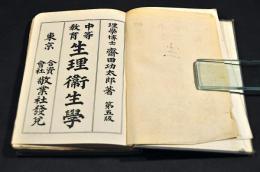 理學博士 齋田功太郎著 第五版
中等教育 生理衞生學
東京 合資會社 敬業社發兌